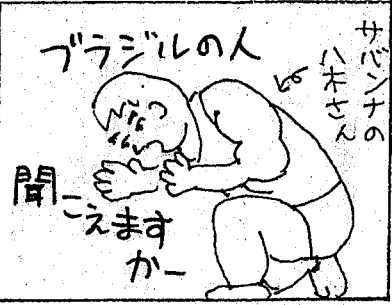 サバンナの
八木さん
ブラジルの人
聞こえます
かー